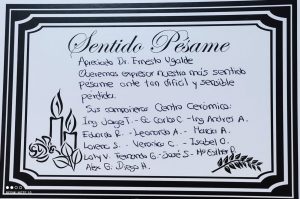 Sentido Pésame
Apreciado Dr. Ernesto Ugalde
Queremos expresar nuestro más sentido
pésame ante tan difícil y sensible
pérdida.
Sus compañeros Centro Cerámica:
Ing Jorge T. - G. Carlos C - Ing Andres A.
Eduardo R. - Leonardo A - Marcia A.
Lorena S. - Veronica C. - Isabel O.
Laly V. Fernando G - José S - Mª Esther P.
Alex G. Diego H.